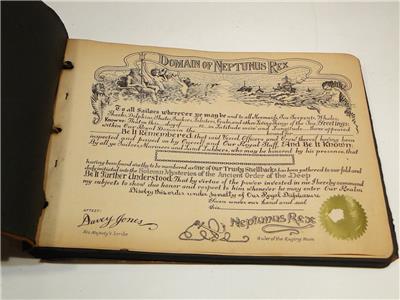 DOMAIN OF NEPTUNUS REX
To all Sailors wherever ye may be and to all Mermaids, Sea Serpents, Whales,
Sharks, Dolphins, Skates, Suckers, Lobsters, Crabs and other Living Things of the Sea Greetings:
Know ye: That on this day of in Latitude and Longitude there appeared
within Our Royal Domain the
Be It Remembered
inspected and passed on by Ourself and Our Royal Staff. And Be It Known:
By all ye Sailors, Marines and Land Lubbers, who may be honored by his presence, that
having been found worthy to be numbered as one of Our Trusty Shellbacks has been gathered to our fold and
duly initiated into the Solemn Mysteries of the Ancient Order of the Deep
Be It Further Understood: That by virtue of the power invested in me I hereby command
my subjects to show due honor and respect to him whenever he may enter Our Realm
Disobey this order under penalty of Our Royal Displeasure
Given under our hand and seal
this
ATTEST:
Davey Jones
His Majesty's Scribe
Neptunus Rex
Ruler of the Raging Main